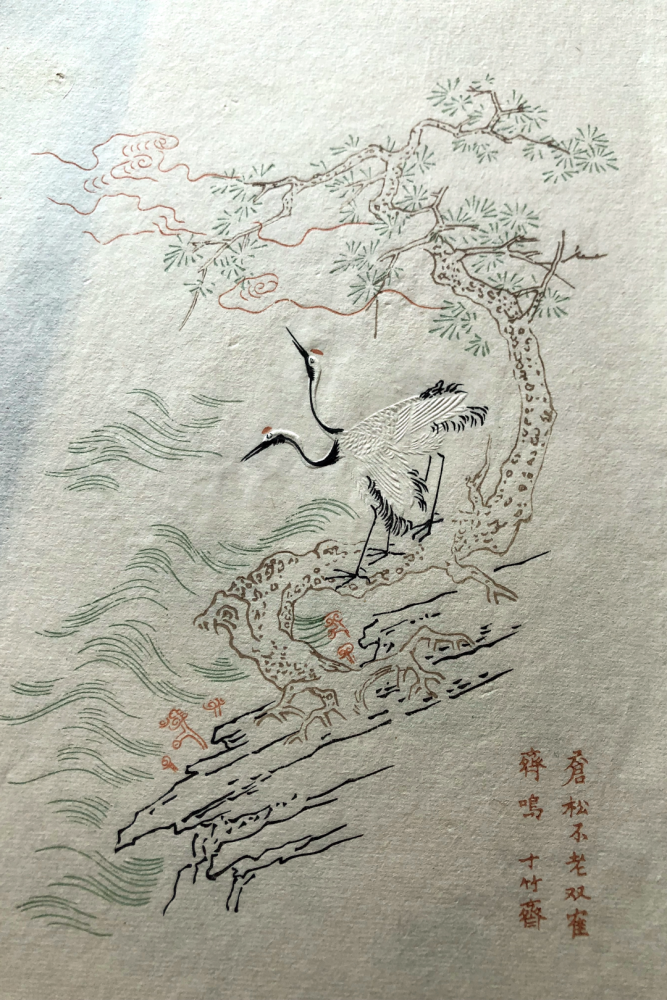 蒼松不老双隺
齊鳴 十竹齋